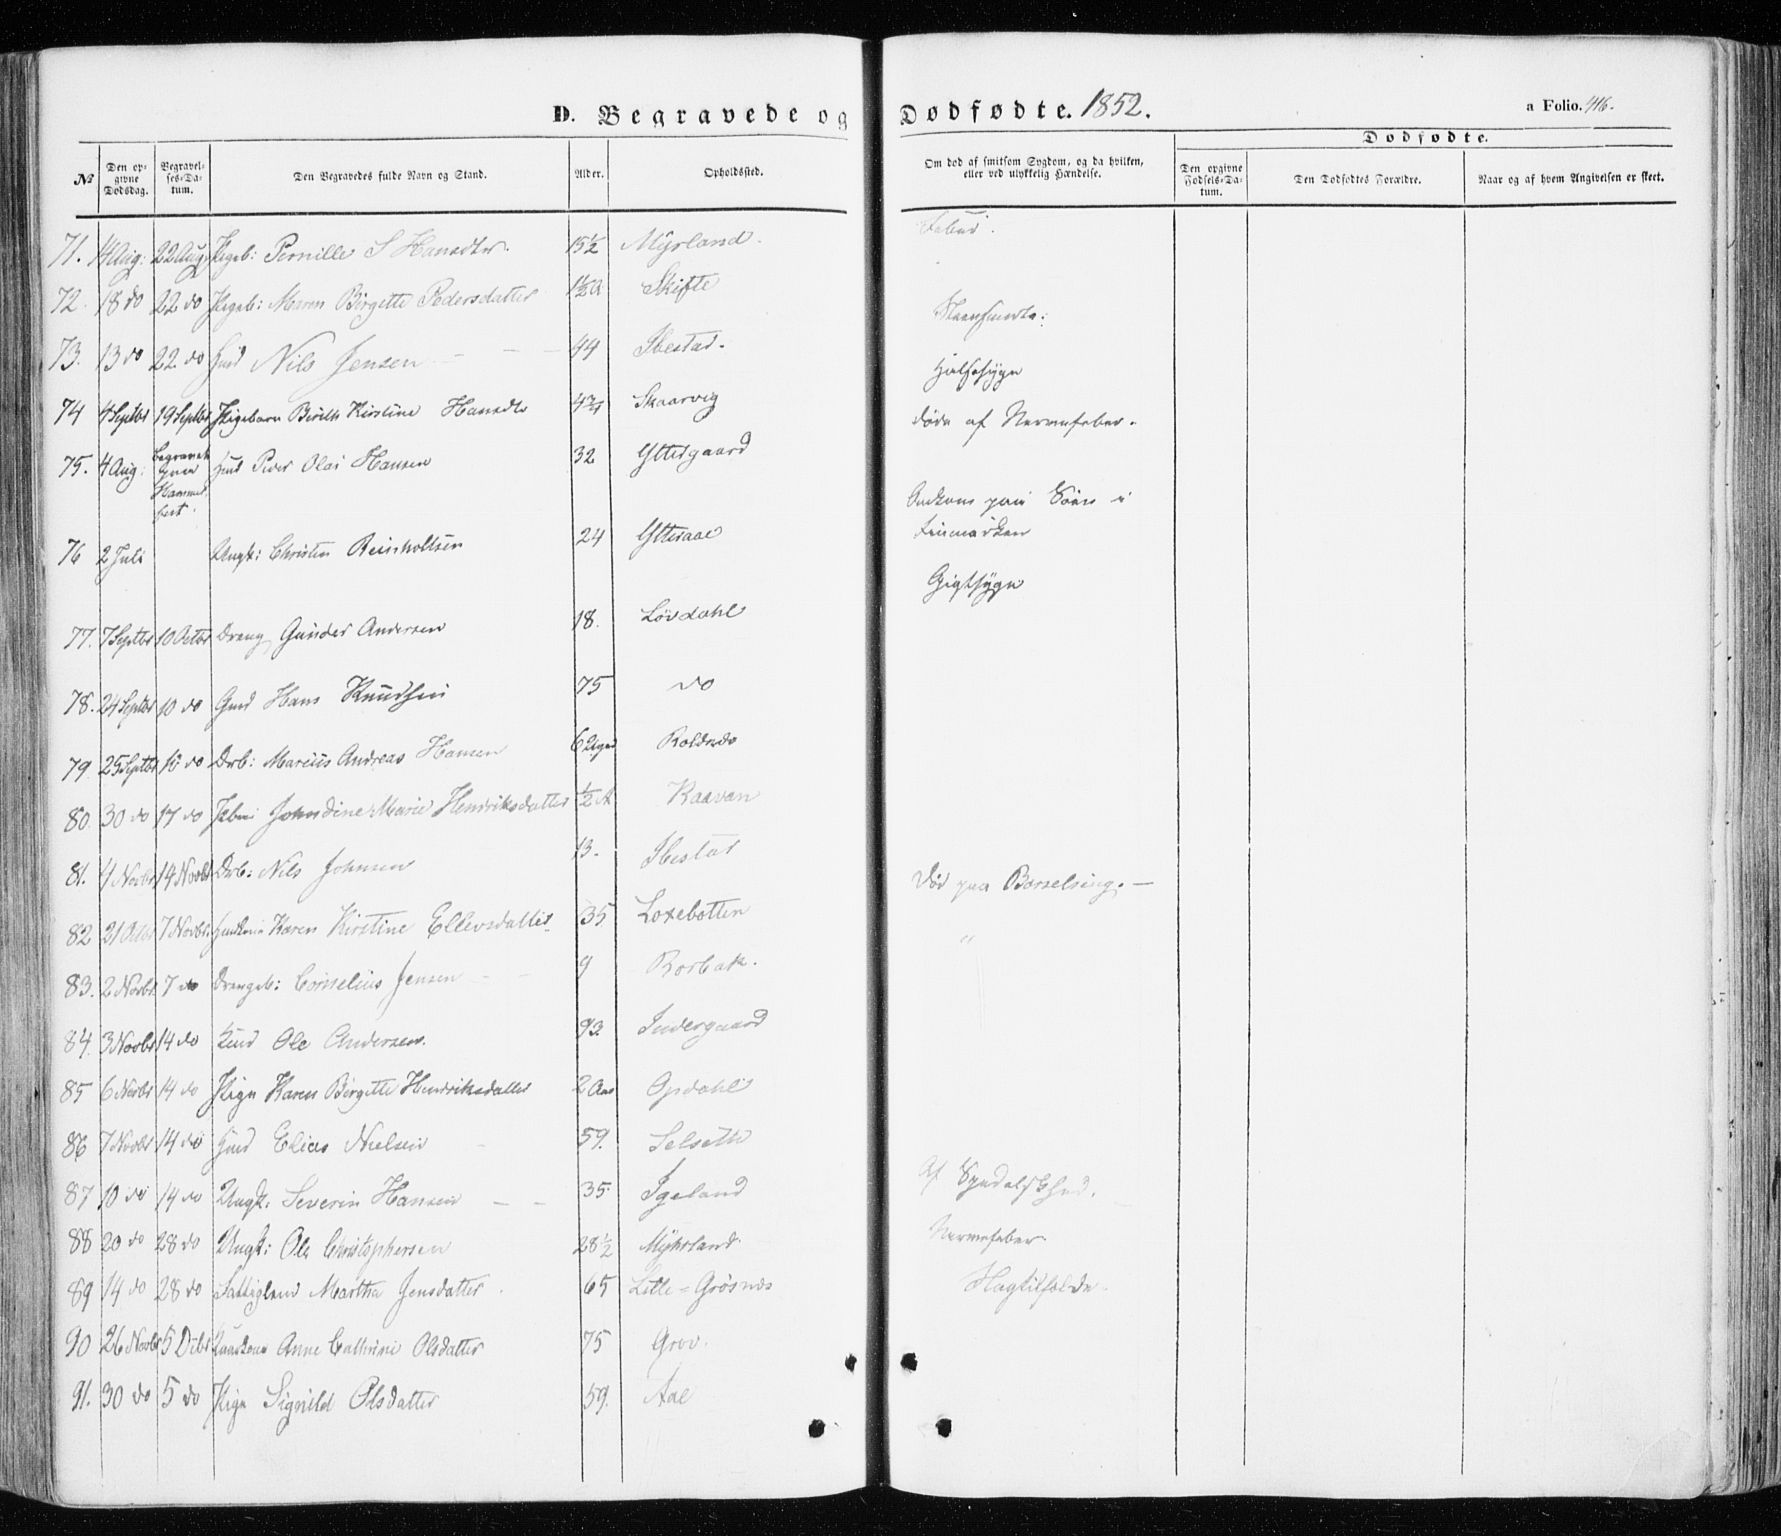 D. Begravede og Dødfødte. 1852. a Folio. 416.
Dødfødte.
№ Den opgivne Dødsdag. Begravelses-Datum. Den Begravedes fulde Navn og Stand. Alder. Opholdsted. Om død af smitsom Sygdom, og da hvilken, eller ved ulykkelig Hændelse. Den opgivne Fødsels-Datum. Den Dødfødtes Forældre. Naar og af hvem Angivelsen er skeet.
71. 14 Aug: 22 Aug Pigeb: Pernille S Hansdtr. 15½ Myrland. Feber.
72. 18 do 22 do Pigeb: Maren Birgette Pedersdatter 1½ A Skifte
73. 13 do 22 do Gmd Nils Jensen 44 Ibestad. Halssyge
74 4 Septbr 19 Septbr Pigebarn Birith Kirstine Hansdtr 4¾ Skaarvig døde af Nervefeber.
75. 4 Aug: begravet Hammerfest. Gmd Peder Olai Hansen 32 Yttergaard Omkom paa Søen i Finmarken
76 2 Juli Ungk: Christen Reinholtsen 24 Ytteraae Gigtsyge
77. 7 Septbr 10 Octbr Dreng Gunder Andersen 18. Løvdahl
78. 24 Septbr 10 do Gmd Hans Knudsen 75 do
79. 25 Septbr 10 do Drb: Marius Andreas Hansen 6 Uger
80. 30 do 17 do Johndine Marie Henriksdatter ½ A Kaavan
81. 4 Novbr 14 Novbr Drb: Nils Johnsen 13. Ibestad
82 21 Octbr 7 Novbr Karen Kirstine Ellevsdatter 35. Loxebotten Død paa Barselseng. —
83. 2 Novbr 7 do Drengeb: Cornelius Jensen 9 Rorbak. "
84. 3 Novbr 14 do Ole Andersen. 93. Indergaard
85 6 Novbr 14 do Pige Karen Birgette Henriksdatter 2 Aar Opdahl
86 7 Novbr 14 do Gmd Elias Nielsen 59. Selseth
87 10 do 14 do Ungk: Severin Hansen 35. Igeland Af Spedalskhed.
88 20 do 28 do Ungk: Ole Christophersen 28½ Myhrland. Nervefeber
89 14 do 28 do Fattiglem Martha Jensdatter 65 Lille-Grøsnæs
90 26 Novbr 5 Dcbr Anne Cathrine Olsdatter 75 Grov.
91. 30 do 5 do Pige Signild Olsdatter 59. Aae